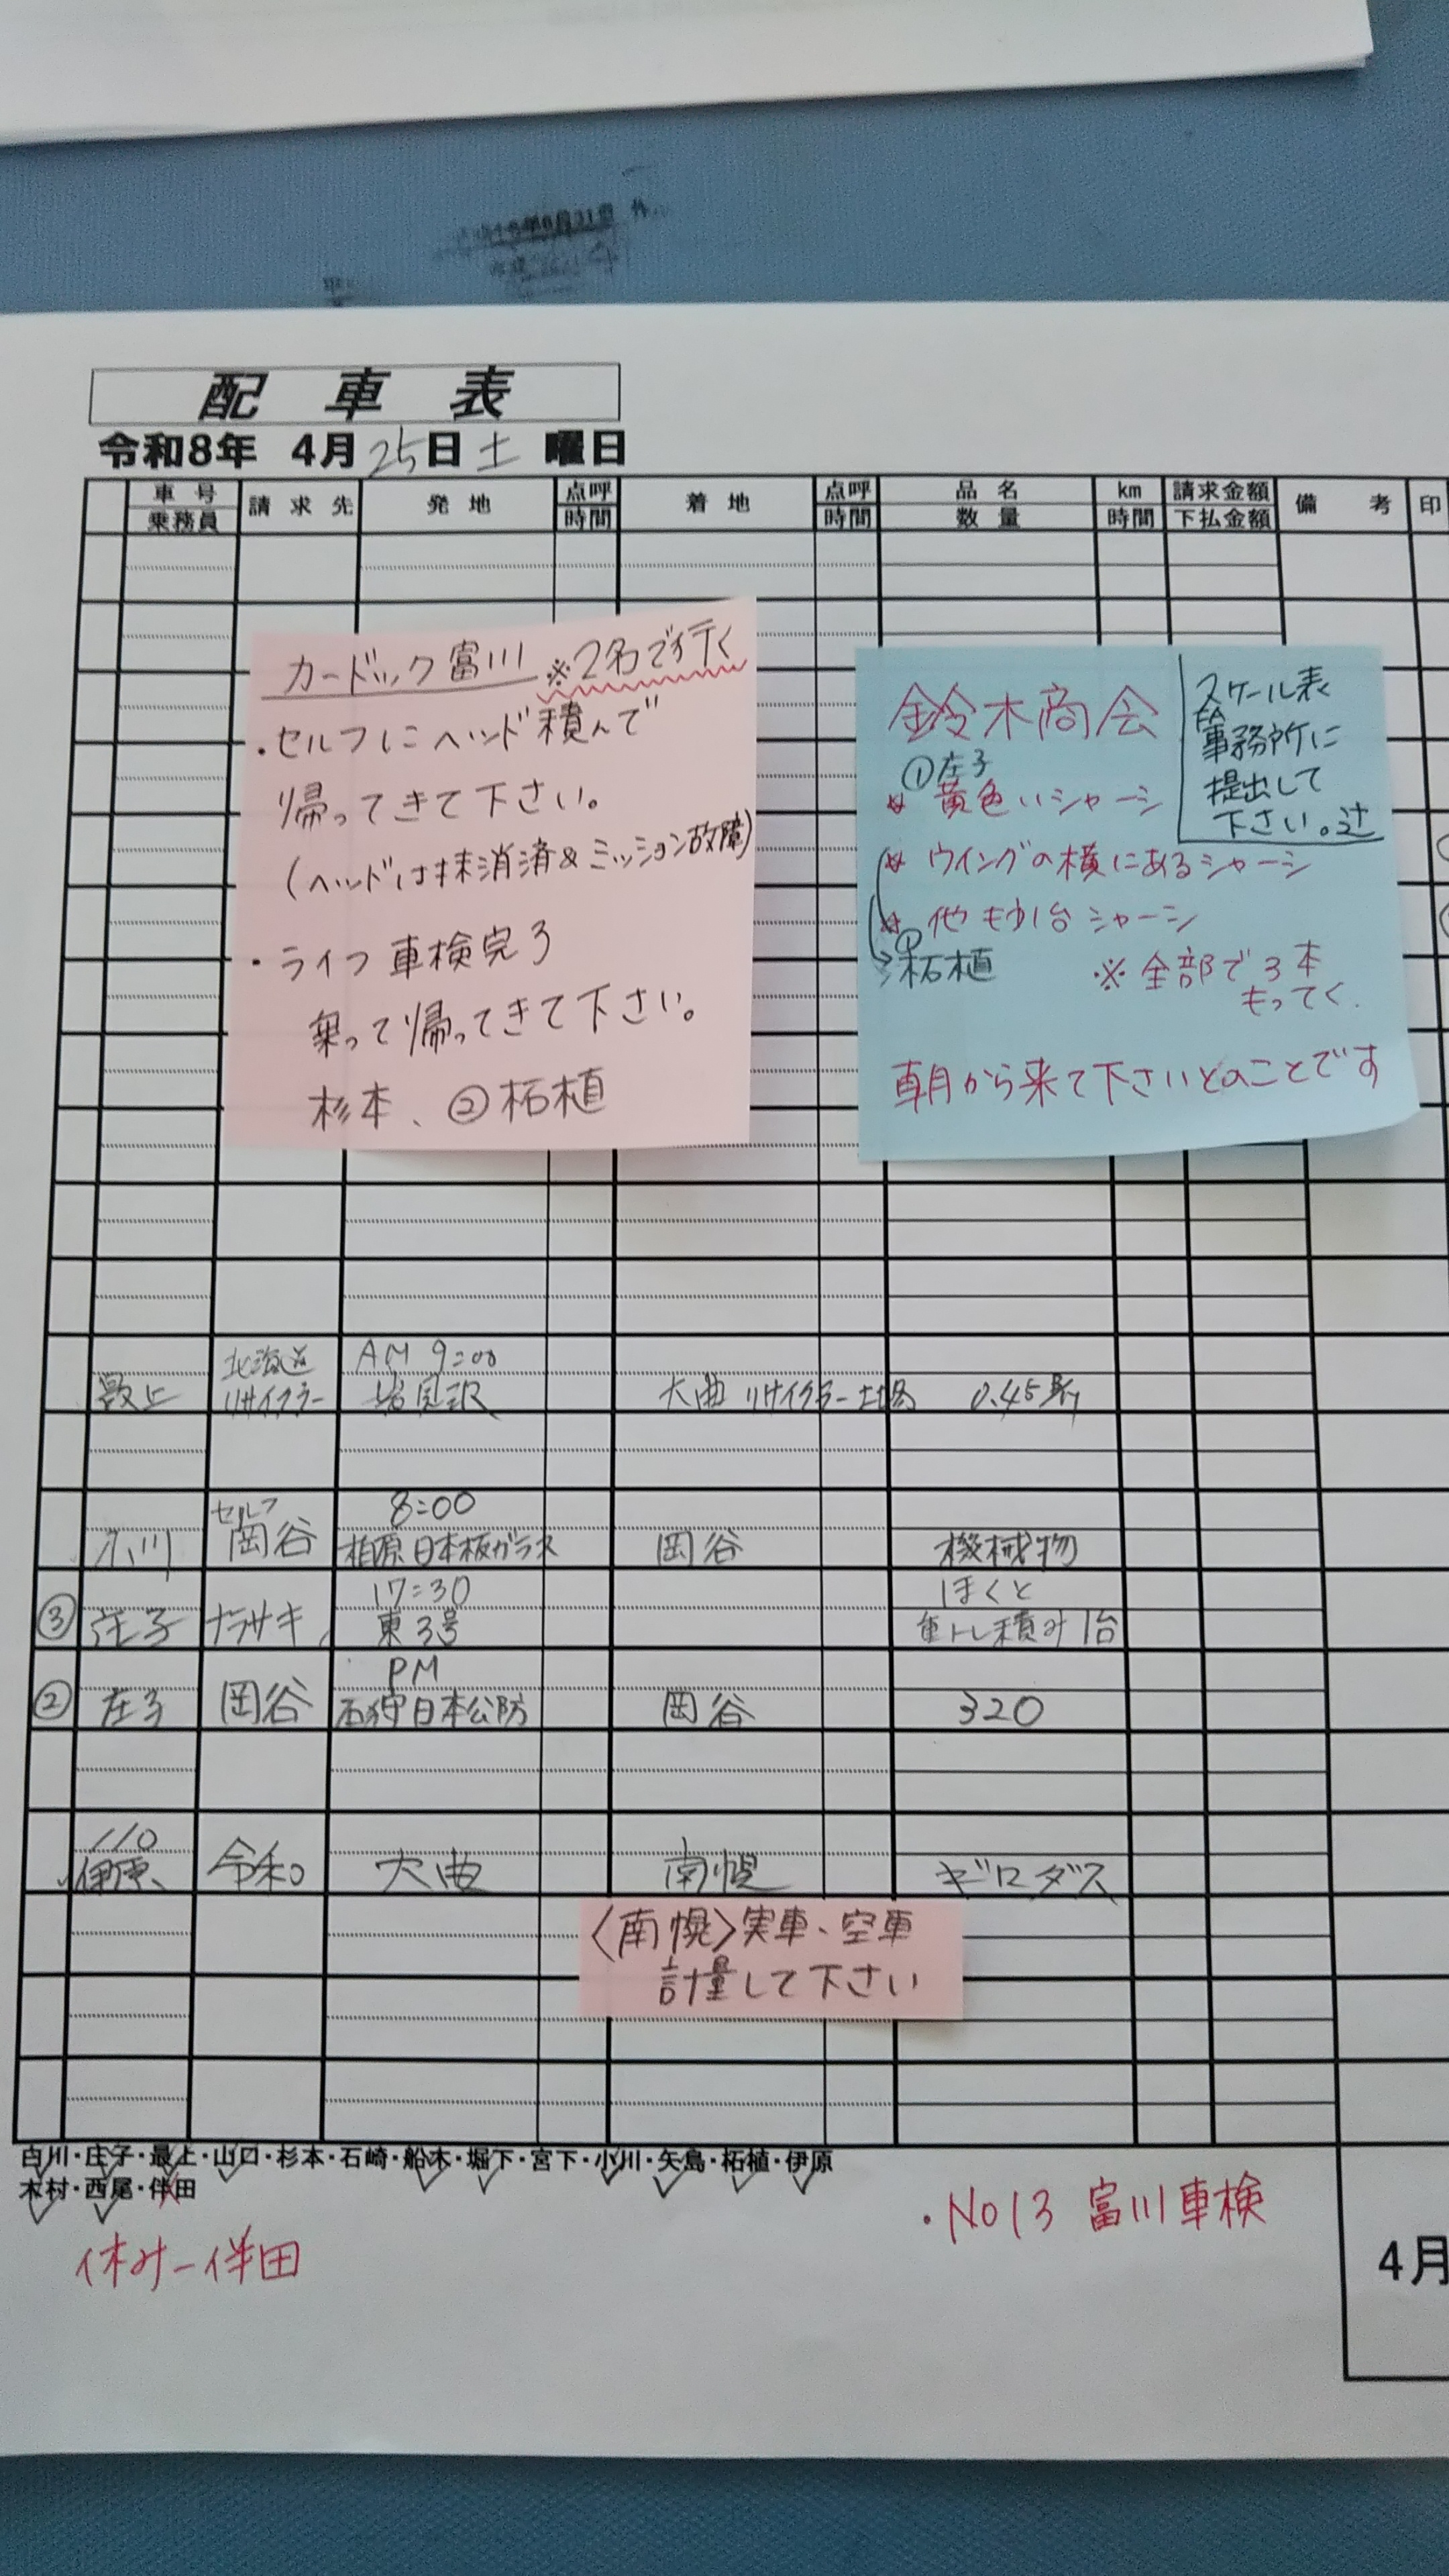 配車表
令和8年 4月25日 土 曜日
車号 請求先 発地 点呼 着地 点呼 品名 km 請求金額 備考 印
乗務員 時間 時間 数量 時間 下払金額
カードック富川 ※2名で行く
・セルフにヘッド積んで
帰ってきて下さい。
(ヘッドは抹消済&ミッション故障)
・ライフ車検完了
乗って帰ってきて下さい。
杉本、②柘植
鈴木商会
①庄子
黄色いシャーシ
ウイングの横にあるシャーシ
他もう1台シャーシ
①
柘植
※全部で3本
もってく.
朝から来て下さいとのことです
スケール表
事務所に
提出して
下さい。辻
北海道 AM 9:00
最上 リサイクラー 岩見沢 大曲リサイクラー土場 0.45
セルフ 8:00
小川 岡谷 柏原日本板ガラス 岡谷 機械物
17:30 ほくと
③ 庄子 ナラサキ 東3号 重トレ積み1台
PM
② 庄子 岡谷 石狩日本公防 岡谷 320
110
伊原 令和 大曲 南幌 ギロダス
〈南幌〉実車、空車
計量して下さい
白川・庄子・最上・山口・杉本・石崎・船木・堀下・宮下・小川・矢島・柘植・伊原
木村・西尾・伴田
休み-伴田
・No13 富川車検
4月